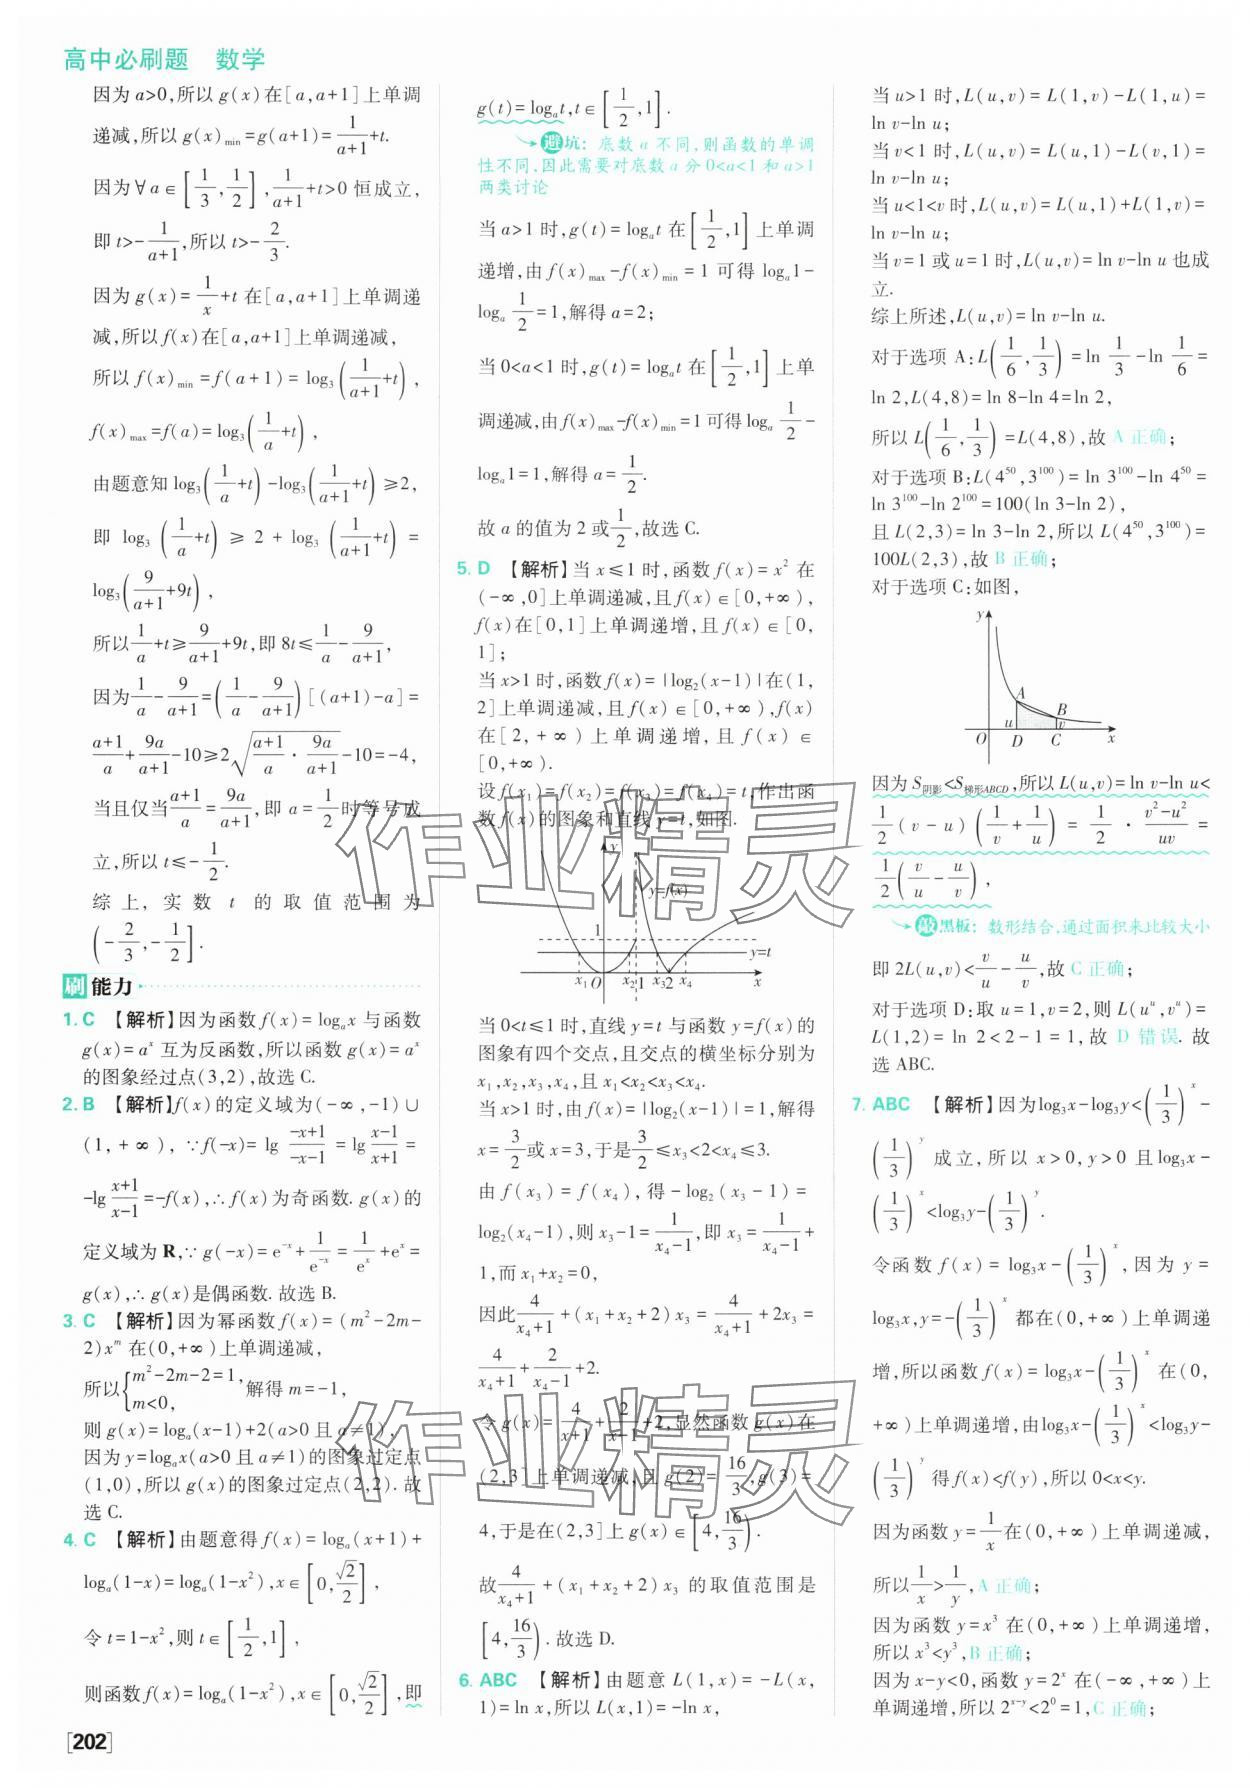 高中必刷题 数学
因为 a>0,所以 g(x)在[a,a+1]上单调
递减,所以 g(x)min=g(a+1)=1/(a+1)+t.
因为∀a∈[1/3,1/2],1/(a+1)+t>0 恒成立,
即 t>-1/(a+1),所以 t>-2/3.
因为 g(x)=1/x+t 在[a,a+1]上单调递
减,所以 f(x)在[a,a+1]上单调递减,
所以 f(x)min=f(a+1)=log₃(1/(a+1)+t),
f(x)max=f(a)=log₃(1/a+t),
由题意知 log₃(1/a+t)-log₃(1/(a+1)+t)≥2,
即 log₃(1/a+t)≥2+log₃(1/(a+1)+t)=
log₃(9/(a+1)+9t),
所以1/a+t≥9/(a+1)+9t,即 8t≤1/a-9/(a+1),
因为1/a-9/(a+1)=(1/a-9/(a+1))[(a+1)-a]=
(a+1)/a+9a/(a+1)-10≥2√((a+1)/a·9a/(a+1))-10=-4,
当且仅当(a+1)/a=9a/(a+1),即 a=1/2时等号成
立,所以 t≤-1/2.
综上,实数 t 的取值范围为
(-2/3,-1/2].
刷能力
1. C 【解析】因为函数 f(x)=logₐx 与函数
g(x)=aˣ 互为反函数,所以函数 g(x)=aˣ
的图象经过点(3,2),故选 C.
2. B 【解析】f(x)的定义域为(-∞,-1)∪
(1,+∞),∵f(-x)=lg (-x+1)/(-x-1)=lg (x-1)/(x+1)=
-lg (x+1)/(x-1)=-f(x),∴f(x)为奇函数. g(x)的
定义域为 R,∵g(-x)=e⁻ˣ+1/e⁻ˣ=1/eˣ+eˣ=
g(x),∴g(x)是偶函数. 故选 B.
3. C 【解析】因为幂函数 f(x)=(m²-2m-
2)xᵐ 在(0,+∞)上单调递减,
所以{m²-2m-2=1, m<0, 解得 m=-1,
则 g(x)=logₐ(x-1)+2(a>0 且 a≠1),
因为 y=logₐx(a>0 且 a≠1)的图象过定点
(1,0),所以 g(x)的图象过定点(2,2). 故
选 C.
4. C 【解析】由题意得 f(x)=logₐ(x+1)+
logₐ(1-x)=logₐ(1-x²),x∈[0,√2/2],
令 t=1-x²,则 t∈[1/2,1],
则函数 f(x)=logₐ(1-x²),x∈[0,√2/2],即
[202]
g(t)=logₐt,t∈[1/2,1].
避坑:底数 a 不同,则函数的单调
性不同,因此需要对底数 a 分 0<a<1 和 a>1
两类讨论
当 a>1 时,g(t)=logₐt 在[1/2,1]上单调
递增,由 f(x)max-f(x)min=1 可得 logₐ1-
logₐ1/2=1,解得 a=2;
当 0<a<1 时,g(t)=logₐt 在[1/2,1]上单
调递减,由 f(x)max-f(x)min=1 可得 logₐ1/2-
logₐ1=1,解得 a=1/2.
故 a 的值为 2 或1/2,故选 C.
5. D 【解析】当 x≤1 时,函数 f(x)=x² 在
(-∞,0]上单调递减,且 f(x)∈[0,+∞),
f(x)在[0,1]上单调递增,且 f(x)∈[0,
1];
当 x>1 时,函数 f(x)=|log₂(x-1)|在(1,
2]上单调递减,且 f(x)∈[0,+∞),f(x)
在[2,+∞)上单调递增,且 f(x)∈
[0,+∞).
设 f(x₁)=f(x₂)=f(x₃)=f(x₄)=t,作出函
数 f(x)的图象和直线 y=t,如图.
y
y=f(x)
1
y=t
x₁ O x₂ 1 x₃ 2 x₄ x
当 0<t≤1 时,直线 y=t 与函数 y=f(x)的
图象有四个交点,且交点的横坐标分别为
x₁,x₂,x₃,x₄,且 x₁<x₂<x₃<x₄.
当 x>1 时,由 f(x)=|log₂(x-1)|=1,解得
x=3/2或 x=3,于是3/2≤x₃<2<x₄≤3.
由 f(x₃)=f(x₄),得-log₂(x₃-1)=
log₂(x₄-1),则 x₃-1=1/(x₄-1),即 x₃=1/(x₄-1)+
1,而 x₁+x₂=0,
因此4/(x₄+1)+(x₁+x₂+2)x₃=4/(x₄+1)+2x₃=
4/(x₄+1)+2/(x₄-1)+2.
令 g(x)=4/(x+1)+2/(x-1)+2,显然函数 g(x)在
(2,3]上单调递减,且 g(2)=16/3,g(3)=
4,于是在(2,3]上 g(x)∈[4,16/3).
故4/(x₄+1)+(x₁+x₂+2)x₃ 的取值范围是
[4,16/3). 故选 D.
6. ABC 【解析】由题意 L(1,x)=-L(x,
1)=ln x,所以 L(x,1)=-ln x,
当 u>1 时,L(u,v)=L(1,v)-L(1,u)=
ln v-ln u;
当 v<1 时,L(u,v)=L(u,1)-L(v,1)=
ln v-ln u;
当 u<1<v 时,L(u,v)=L(u,1)+L(1,v)=
ln v-ln u;
当 v=1 或 u=1 时,L(u,v)=ln v-ln u 也成
立.
综上所述,L(u,v)=ln v-ln u.
对于选项 A:L(1/6,1/3)=ln 1/3-ln 1/6=
ln 2,L(4,8)=ln 8-ln 4=ln 2,
所以 L(1/6,1/3)=L(4,8),故 A 正确;
对于选项 B:L(4⁵⁰,3¹⁰⁰)=ln 3¹⁰⁰-ln 4⁵⁰=
ln 3¹⁰⁰-ln 2¹⁰⁰=100(ln 3-ln 2),
且 L(2,3)=ln 3-ln 2,所以 L(4⁵⁰,3¹⁰⁰)=
100L(2,3),故 B 正确;
对于选项 C:如图,
y
A
B
u v
O D C x
因为 S阴影<S梯形ABCD,所以 L(u,v)=ln v-ln u<
1/2(v-u)(1/v+1/u)=1/2·(v²-u²)/uv=
1/2(v/u-u/v),
敲黑板:数形结合,通过面积来比较大小
即 2L(u,v)<v/u-u/v,故 C 正确;
对于选项 D:取 u=1,v=2,则 L(uᵘ,vᵘ)=
L(1,2)=ln 2<2-1=1,故 D 错误. 故
选 ABC.
7. ABC 【解析】因为log₃x-log₃y<(1/3)ˣ-
(1/3)ʸ 成立,所以 x>0,y>0 且 log₃x-
(1/3)ˣ<log₃y-(1/3)ʸ.
令函数 f(x)=log₃x-(1/3)ˣ,因为 y=
log₃x,y=-(1/3)ˣ 都在(0,+∞)上单调递
增,所以函数 f(x)=log₃x-(1/3)ˣ 在(0,
+∞)上单调递增,由log₃x-(1/3)ˣ<log₃y-
(1/3)ʸ 得 f(x)<f(y),所以 0<x<y.
因为函数 y=1/x在(0,+∞)上单调递减,
所以1/x>1/y,A 正确;
因为函数 y=x³ 在(0,+∞)上单调递增,
所以 x³<y³,B 正确;
因为 x-y<0,函数 y=2ˣ 在(-∞,+∞)上
单调递增,所以 2ˣ⁻ʸ<2⁰=1,C 正确;
作业精灵
作业精灵